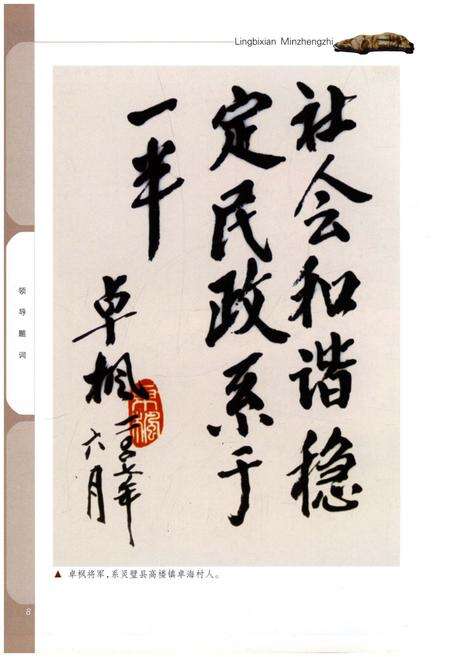 Lingbixian Minzhengzhi
社会和谐稳
定民政系于
一半
卓枫
六月
领导题词
▲ 卓枫将军,系灵璧县高楼镇卓海村人。
8